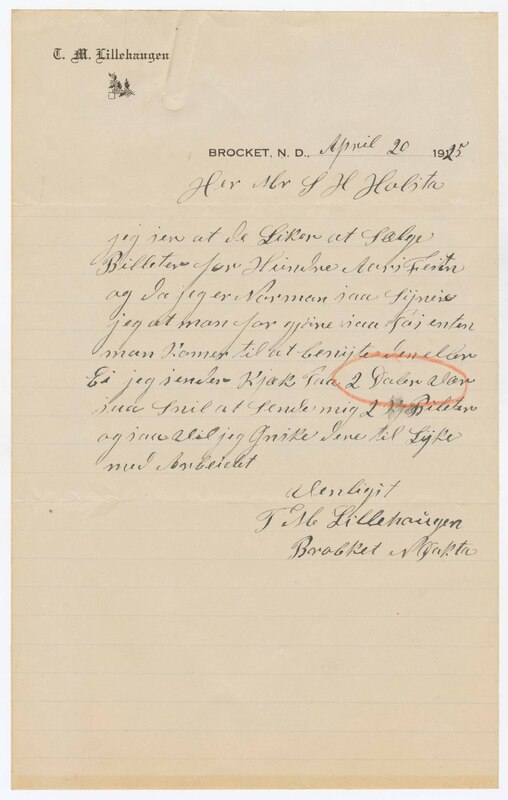 T. M. Lillehaugen
BROCKET, N. D., April 20 1925
Her Mr S H Holsta
jeg ser at de Liker at Sælge
Billeter for Hundre Aars Festn
og da jeg er Norman saa Synes
jeg at man for gjöre saa
man Komer til at benyte den eler
Ei jeg sender Kjæk Paa 2 Daler vær
saa Snil at Sende mig 2 Bileter
og saa vil jeg Önske dere til Lyke
med Arbeidet
Venligst
T M Lillehaugen
Brocket N Dakta